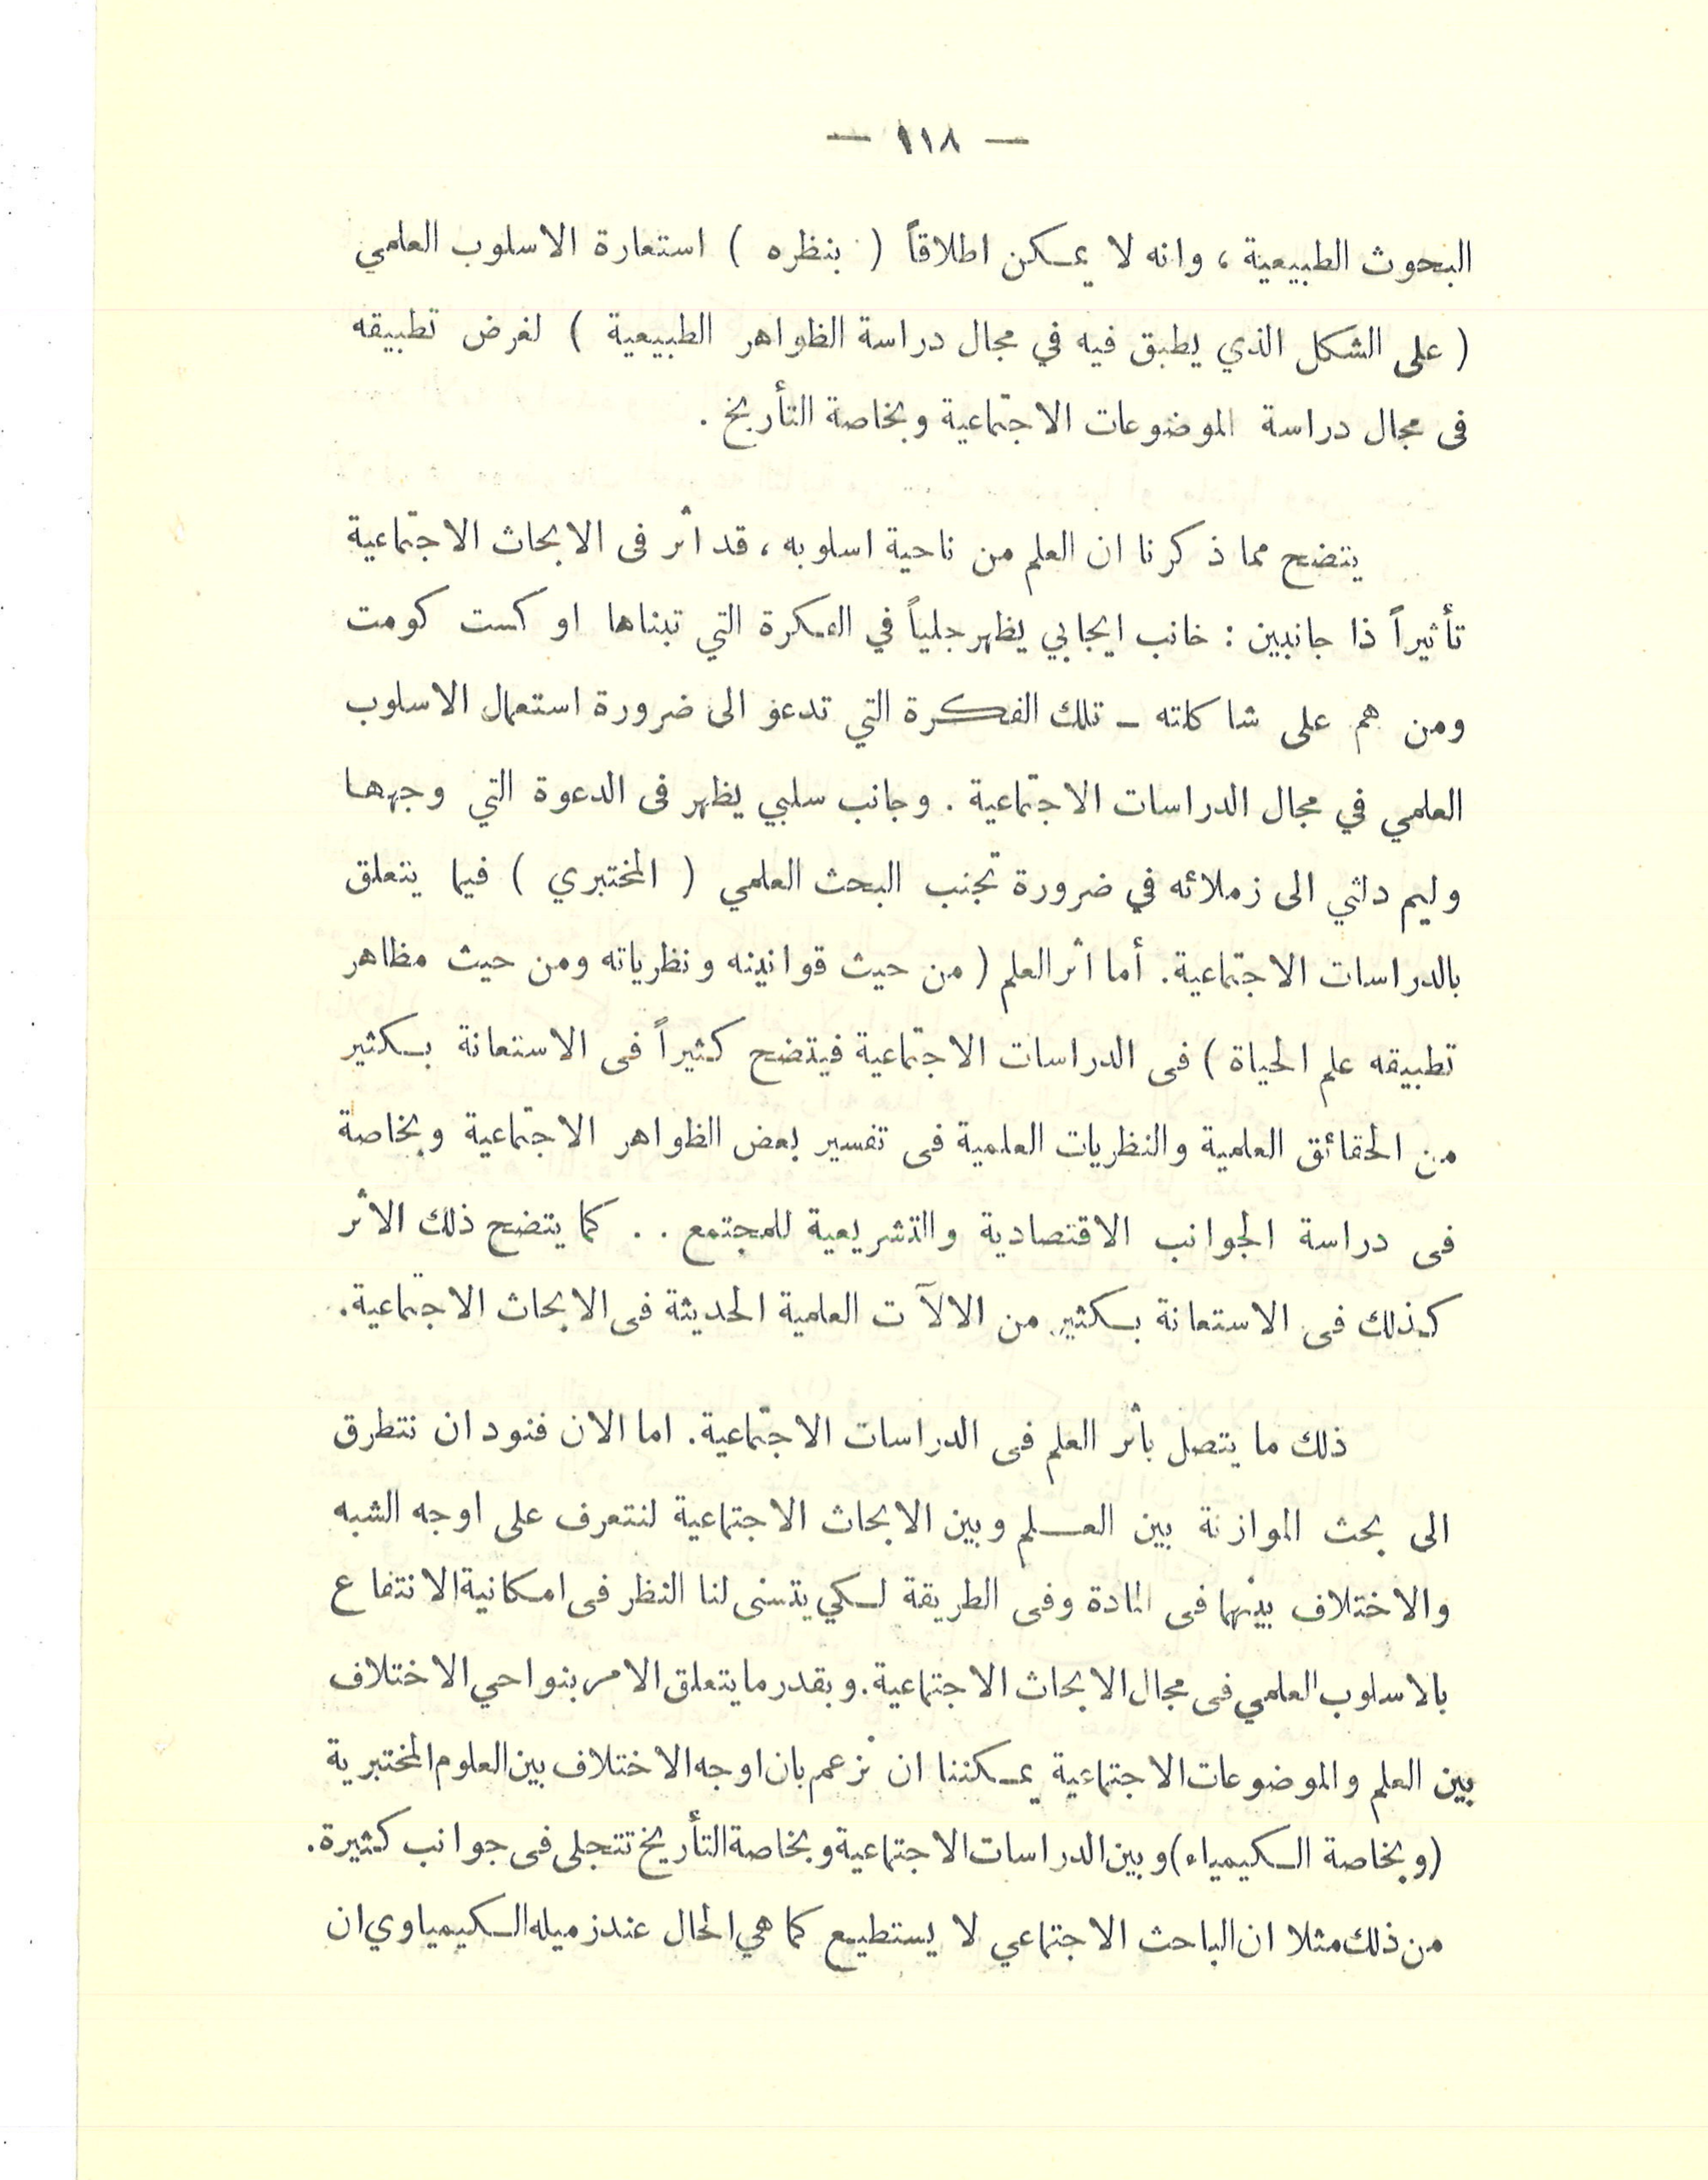 — ١١٨ —
البحوث الطبيعية ، وانه لا يمكن اطلاقاً ( بنظره ) استعارة الاسلوب العلمي
( على الشكل الذي يطبق فيه في مجال دراسة الظواهر الطبيعية ) لغرض تطبيقه
فى مجال دراسة الموضوعات الاجتماعية وبخاصة التأريخ .
يتضح مما ذكرنا ان العلم من ناحية اسلوبه ، قد اثر فى الابحاث الاجتماعية
تأثيراً ذا جانبين : خانب ايجابي يظهر جلياً في الفكرة التي تبناها اوكست كومت
ومن هم على شاكلته – تلك الفكرة التي تدعو الى ضرورة استعمال الاسلوب
العلمي في مجال الدراسات الاجتماعية . وجانب سلبي يظهر فى الدعوة التي وجهها
وليم دلثي الى زملائه في ضرورة تجنب البحث العلمي ( المختبري ) فيما يتعلق
بالدراسات الاجتماعية . أما اثر العلم ( من حيث قوانينه ونظرياته ومن حيث مظاهر
تطبيقه علم الحياة ) فى الدراسات الاجتماعية فيتضح كثيراً فى الاستعانة بكثير
من الحقائق العلمية والنظريات العلمية فى تفسير بعض الظواهر الاجتماعية وبخاصة
فى دراسة الجوانب الاقتصادية والتشريعية للمجتمع . . كما يتضح ذلك الاثر
كذلك فى الاستعانة بكثير من الالآت العلمية الحديثة فى الابحاث الاجتماعية .
ذلك ما يتصل باثر العلم فى الدراسات الاجتماعية . اما الان فنود ان نتطرق
الى بحث الموازنة بين العلم وبين الابحاث الاجتماعية لنتعرف على اوجه الشبه
والاختلاف بينهما فى المادة وفى الطريقة لكي يتسنى لنا النظر فى امكانية الانتفاع
بالاسلوب العلمي فى مجال الابحاث الاجتماعية . وبقدر ما يتعلق الامر بنواحي الاختلاف
بين العلم والموضوعات الاجتماعية يمكننا ان نزعم بان اوجه الاختلاف بين العلوم المختبرية
(وبخاصة الكيمياء) وبين الدراسات الاجتماعية وبخاصة التأريخ تتجلى فى جوانب كثيرة .
من ذلك مثلا ان الباحث الاجتماعي لا يستطيع كما هي الحال عند زميله الكيمياوي ان